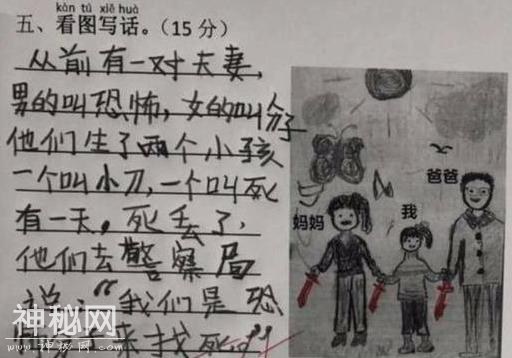 kàn tú xiě huà
五、看图写话。(15分)
从前有一对夫妻,
男的叫恐怖,女的叫分子
他们生了两个小孩
一个叫小刀,一个叫死
有一天,死丢了,
他们去警察局
说:“我们是恐
来找死
妈妈
我
爸爸
神秘网